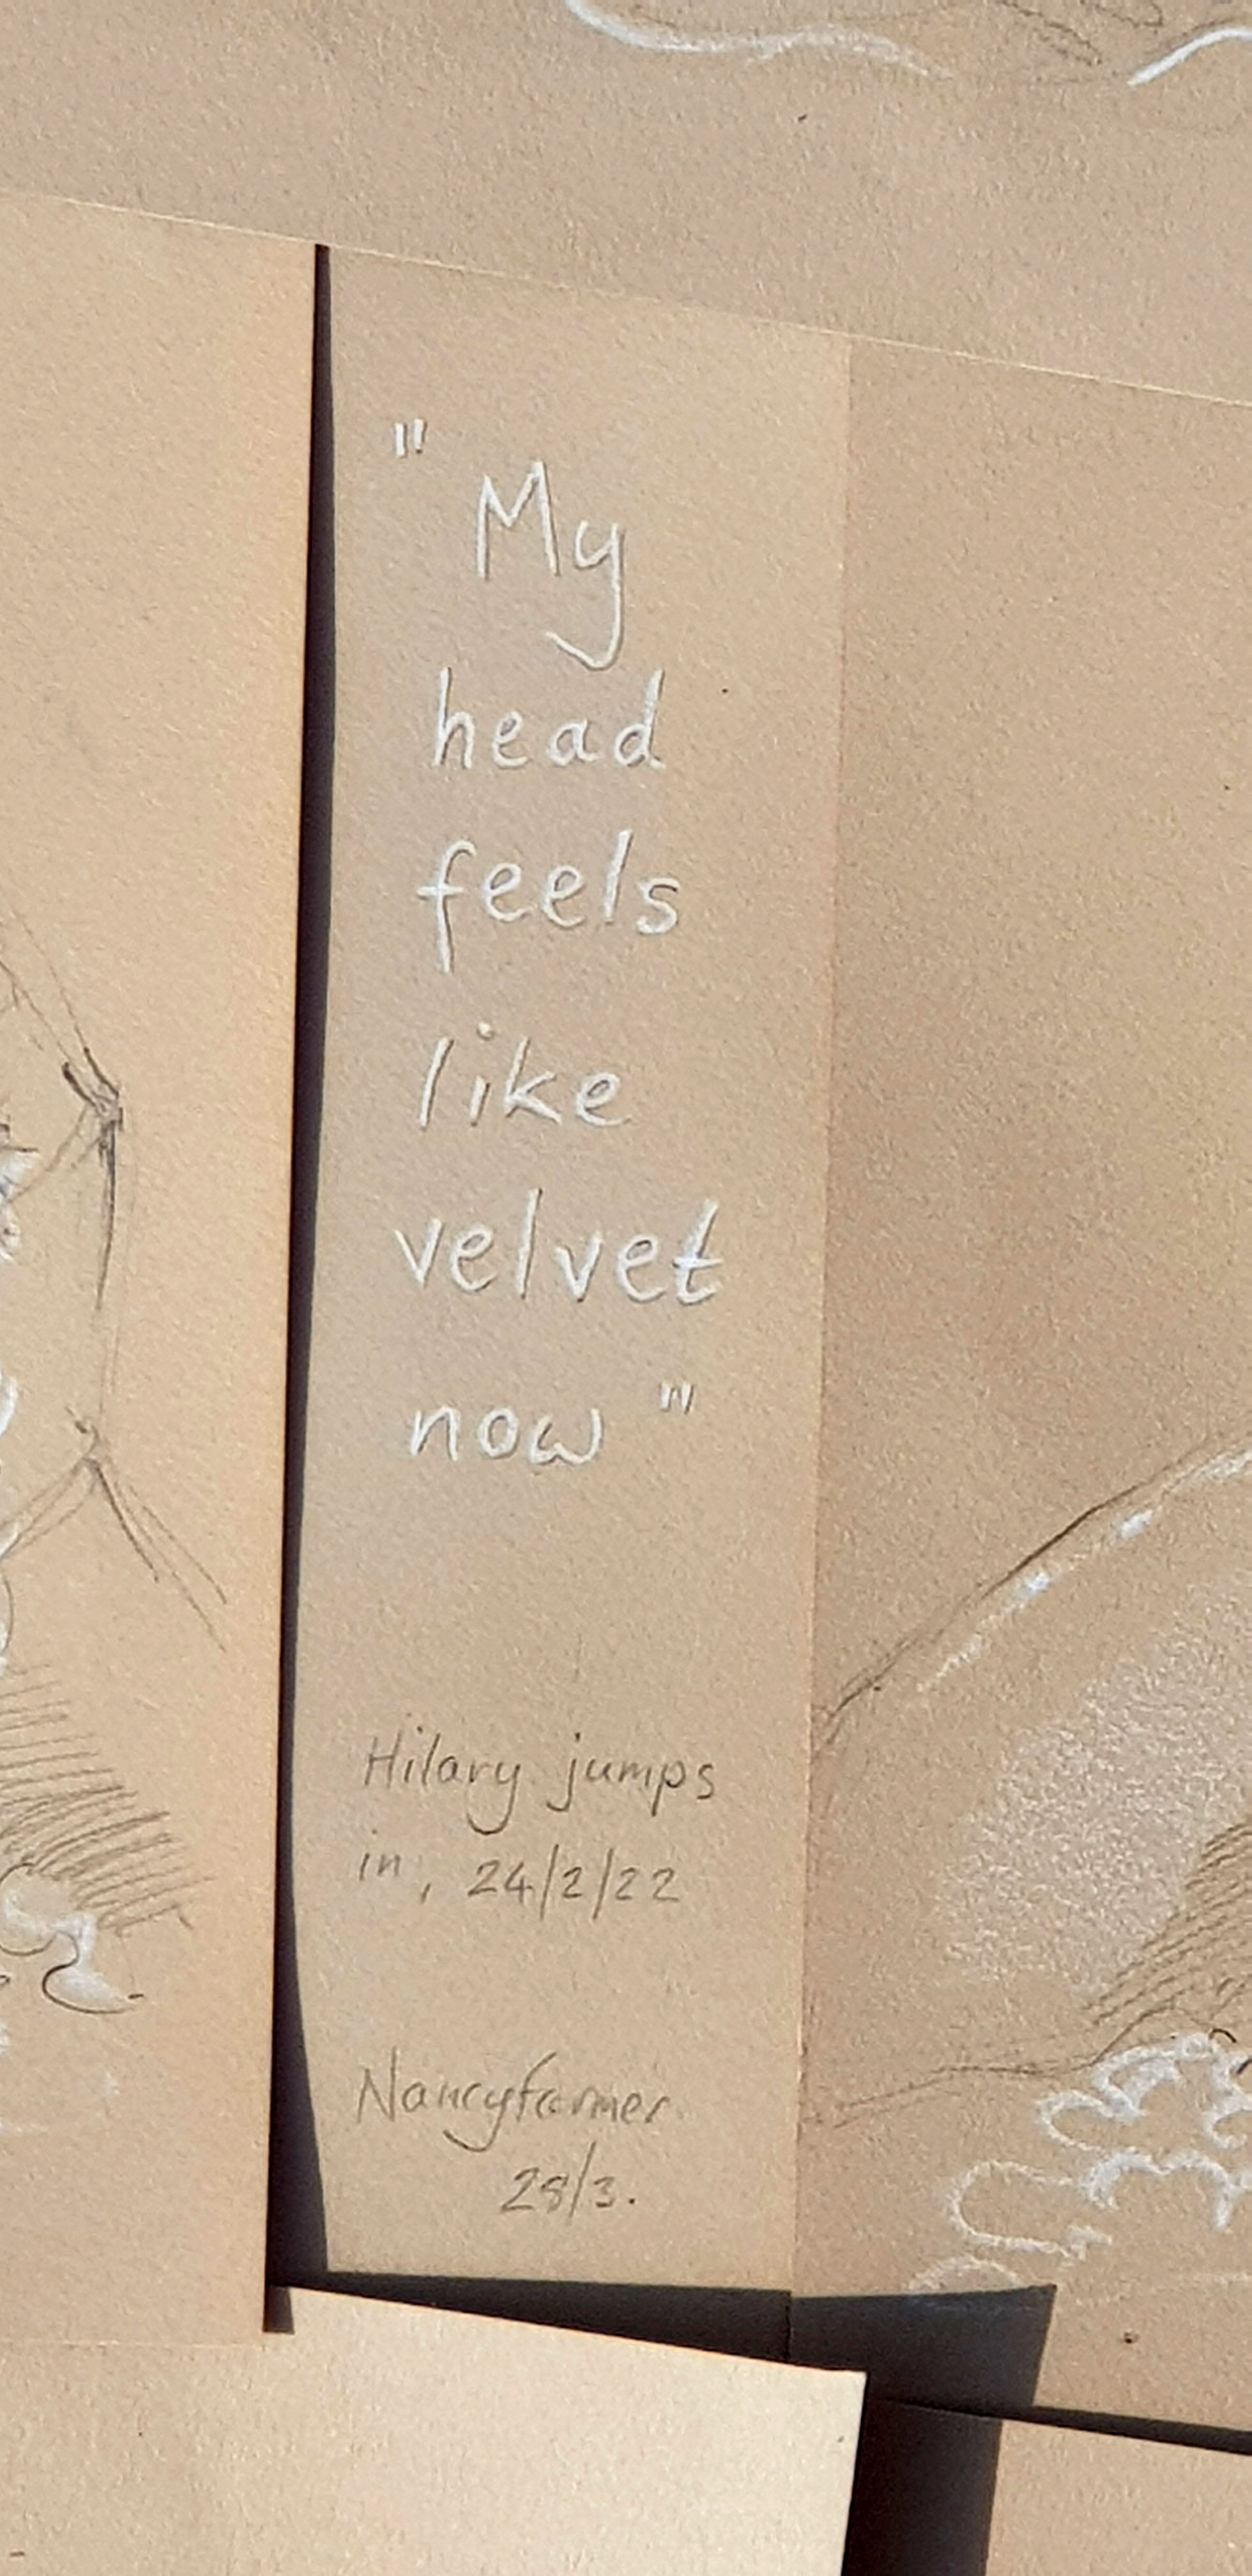 "My
head
feels
like
velvet
now"
Hilary jumps
in, 24/2/22
Nancyfarmer
28/3.